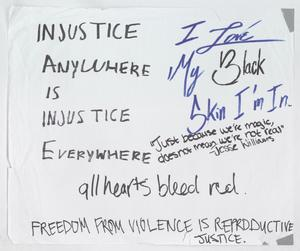 INJUSTICE
ANYWHERE
IS
INJUSTICE
EVERYWHERE
I Love
My Black
Skin I'm In.
"Just because we're magic,
does not mean we're not real"
-Jesse Williams
all hearts bleed red.
FREEDOM FROM VIOLENCE IS REPRODUCTIVE
JUSTICE.